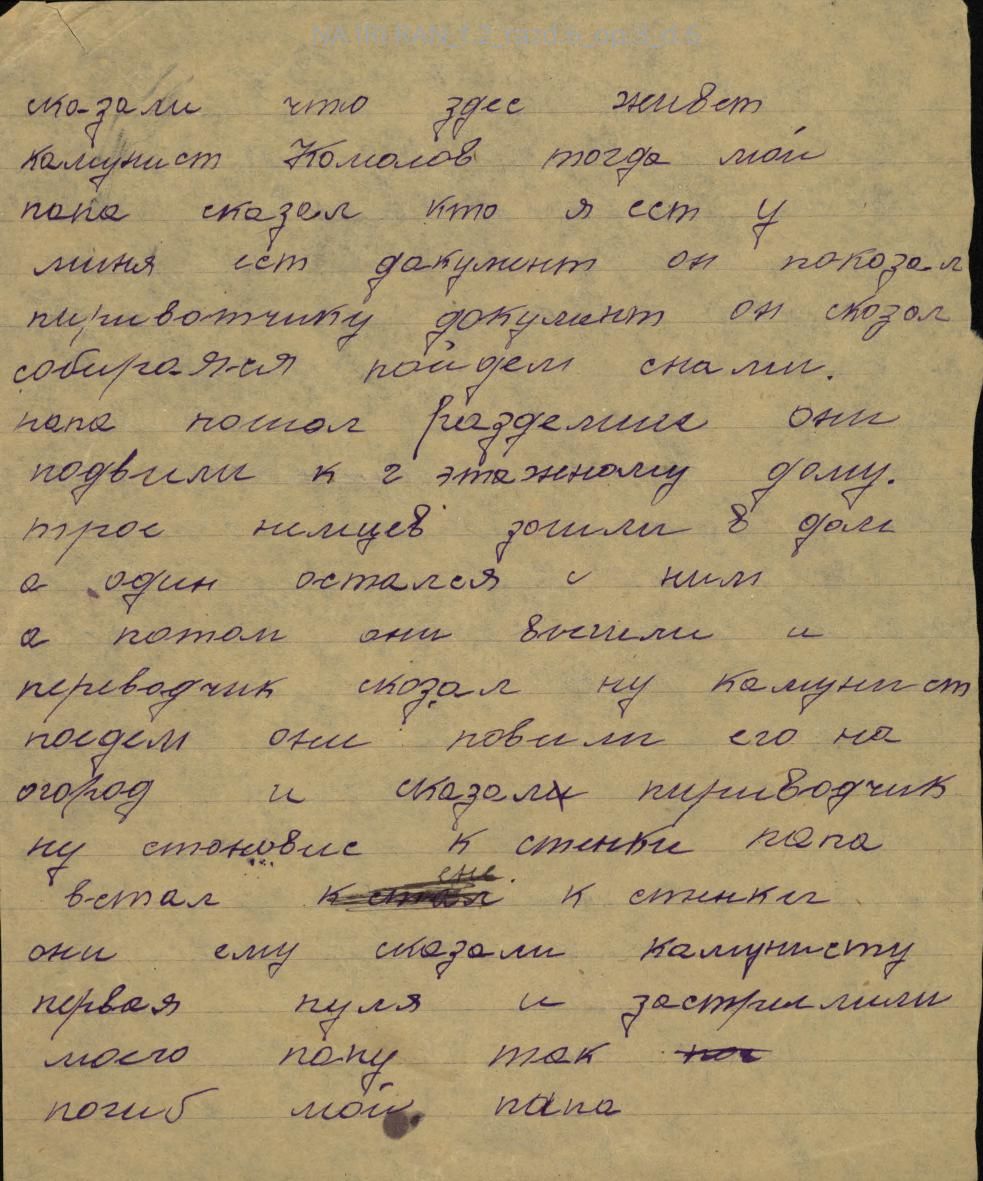 NA IRI RAN_f.2_razd.6_op.3_d.6
сказали что здес живет
камунист Комолов тогда мой
папа сказал кто я ест у
миня ест дакумент он показал
пириватчику докуминт он сказал
собирая-ся пойдем снами.
папа пошол раздемше они
подвили к 2 этажнному дому.
трое немцев зошли в дом
а один остался с ним
а потом они вышли и
переводчик сказал ну камунист
поедем они повили его на
огород и сказали пириводчик
ну становис к стенки папа
встал к стенки
они ему сказали камунисту
первая пуля и застрилили
моего папу так
погиб мой папа